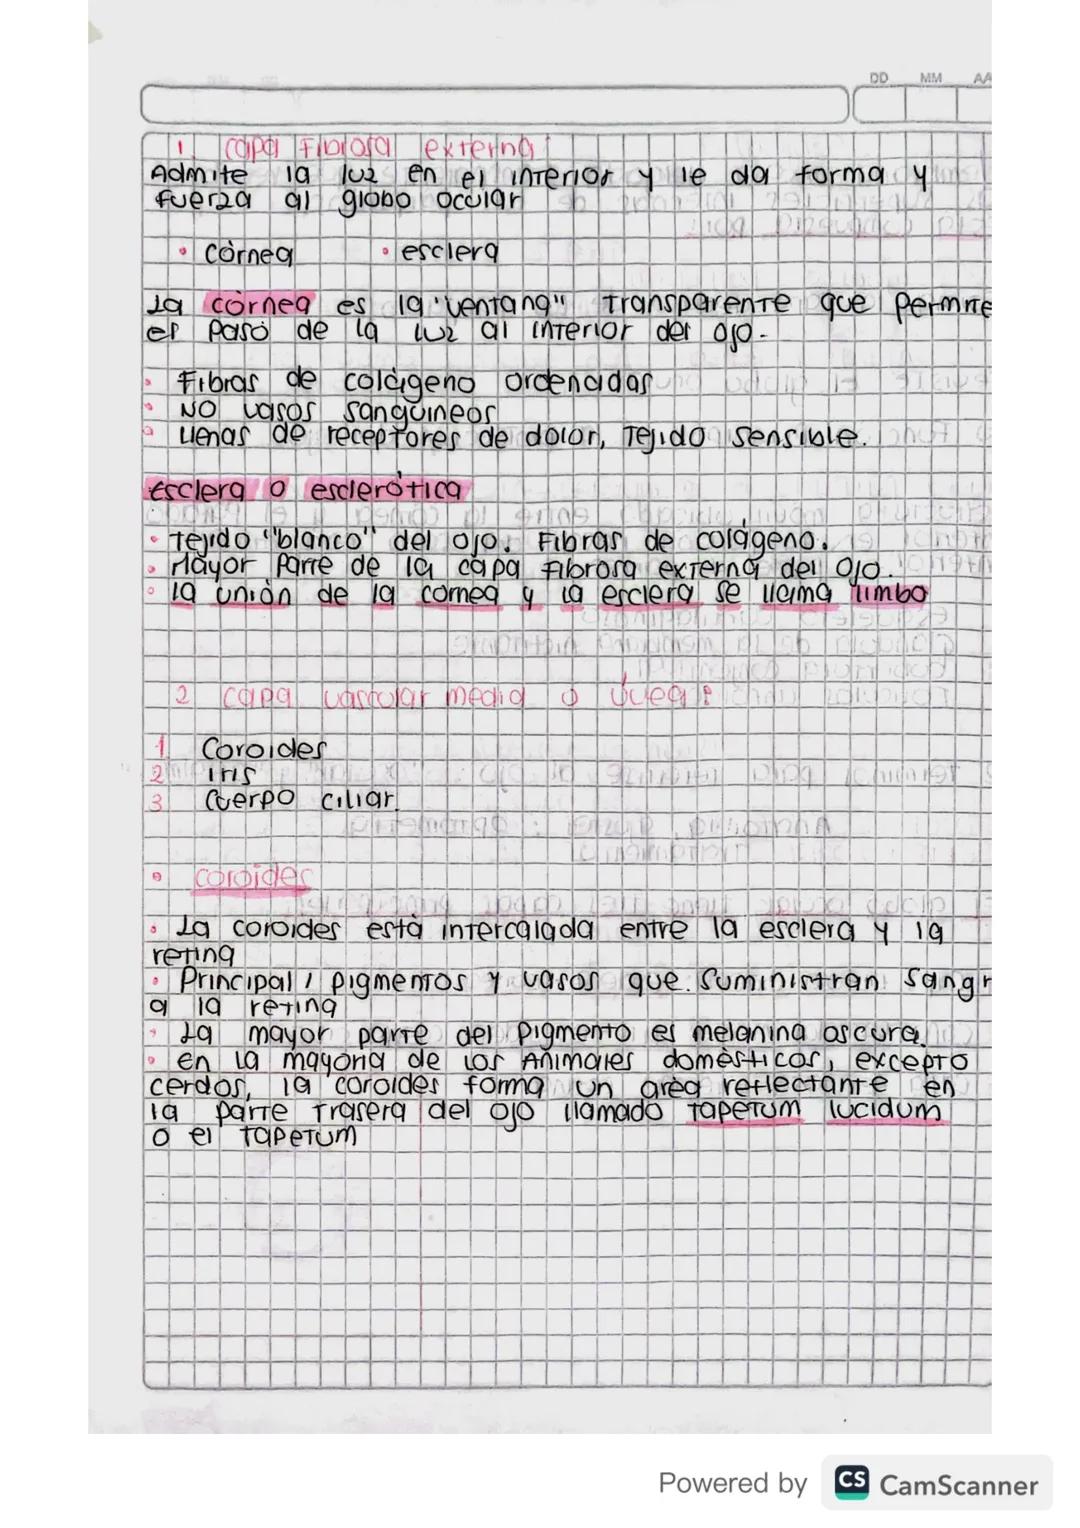 DD MM AA
1. Capa Fibrosa externa:
Admite la luz en el interior y le da forma y
fuerza al globo ocular
• Córnea • esclera
La córnea es la "ventana" transparente que permite
el paso de la luz al interior del ojo.
• Fibras de colágeno ordenadas
• NO vasos sanguineos
• llenas de receptores de dolor, Tejido sensible.
Esclera o esclerótica
• Tejido "blanco" del ojo. Fibras de colágeno.
• Mayor parte de la capa fibrosa externa del ojo.
• la unión de la cornea y la esclera se llama limbo
2 capa vascular media o Úvea:
1 Coroides
2 iris
3 Cuerpo ciliar.
• coroides
• La coroides está intercalada entre la esclera y la
retina
• Principal / pigmentos y vasos que suministran sangr
a la retina
• La mayor parte del pigmento es melanina oscura.
• en la mayoria de los Animales domèsticos, excepto
cerdos, la coroides forma un area reflectante en
la parte trasera del ojo llamado tapetum lucidum
o el tapetum
Powered by CS CamScanner